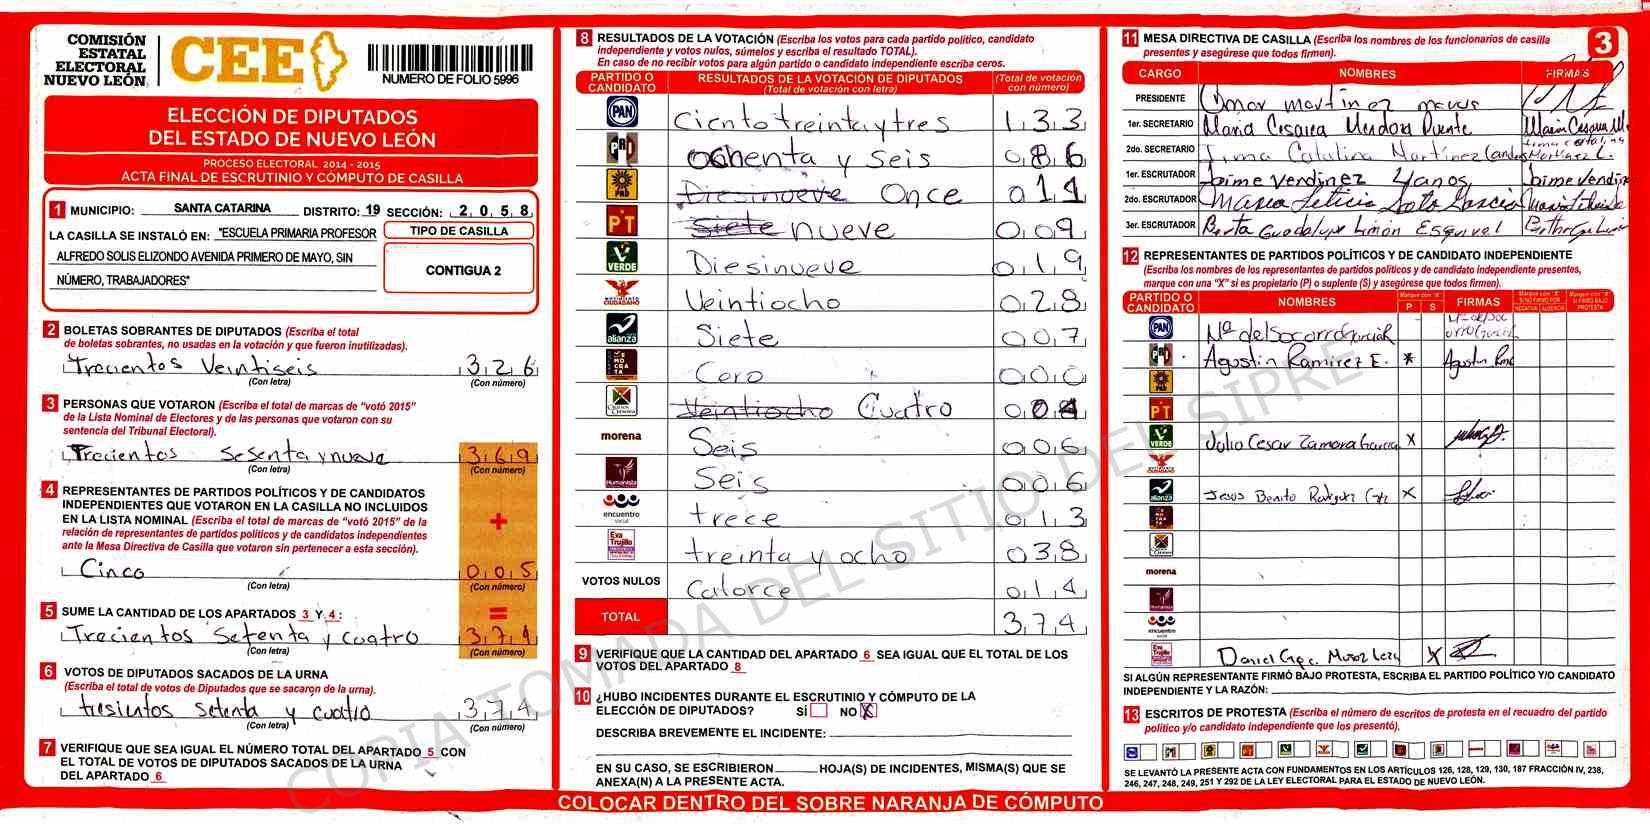 COMISIÓN
ESTATAL
ELECTORAL
NUEVO LEÓN
CEE
NUMERO DE FOLIO 5996
ELECCIÓN DE DIPUTADOS
DEL ESTADO DE NUEVO LEÓN
PROCESO ELECTORAL 2014 - 2015
ACTA FINAL DE ESCRUTINIO Y CÓMPUTO DE CASILLA
1 MUNICIPIO: SANTA CATARINA DISTRITO: 19 SECCIÓN: 2 0 5 8
LA CASILLA SE INSTALÓ EN: "ESCUELA PRIMARIA PROFESOR
ALFREDO SOLIS ELIZONDO AVENIDA PRIMERO DE MAYO, SIN
NÚMERO, TRABAJADORES"
TIPO DE CASILLA
CONTIGUA 2
2 BOLETAS SOBRANTES DE DIPUTADOS (Escriba el total
de boletas sobrantes, no usadas en la votación y que fueron inutilizadas).
Trecientos Veintiseis 3 2 6
(Con letra) (Con número)
3 PERSONAS QUE VOTARON (Escriba el total de marcas de "votó 2015"
de la Lista Nominal de Electores y de las personas que votaron con su
sentencia del Tribunal Electoral).
Trecientos Sesenta y nueve 3 6 9
(Con letra) (Con número)
4 REPRESENTANTES DE PARTIDOS POLÍTICOS Y DE CANDIDATOS
INDEPENDIENTES QUE VOTARON EN LA CASILLA NO INCLUIDOS
EN LA LISTA NOMINAL (Escriba el total de marcas de "votó 2015" de la
relación de representantes de partidos políticos y de candidatos independientes
ante la Mesa Directiva de Casilla que votaron sin pertenecer a esta sección).
+
Cinco 0 0 5
(Con letra) (Con número)
5 SUME LA CANTIDAD DE LOS APARTADOS 3 Y 4 :
=
Trecientos Setenta y cuatro 3 7 4
(Con letra) (Con número)
6 VOTOS DE DIPUTADOS SACADOS DE LA URNA
(Escriba el total de votos de Diputados que se sacaron de la urna).
tresientos setenta y cuatro 3 7 4
(Con letra) (Con número)
7 VERIFIQUE QUE SEA IGUAL EL NÚMERO TOTAL DEL APARTADO 5 CON
EL TOTAL DE VOTOS DE DIPUTADOS SACADOS DE LA URNA
DEL APARTADO 6
8 RESULTADOS DE LA VOTACIÓN (Escriba los votos para cada partido político, candidato
independiente y votos nulos, súmelos y escriba el resultado TOTAL).
En caso de no recibir votos para algún partido o candidato independiente escriba ceros.
PARTIDO O CANDIDATO RESULTADOS DE LA VOTACIÓN DE DIPUTADOS (Total de votación con letra) (Total de votación con número)
PAN Ciento treinta y tres 1 3 3
PRI Ochenta y Seis 0 8 6
PRD Diesinueve Once 0 1 1
PT Siete nueve 0 0 9
VERDE Diesinueve 0 1 9
MOVIMIENTO CIUDADANO Veintiocho 0 2 8
alianza Siete 0 0 7
DEMOCRATA Cero 0 0 0
Veintiocho Cuatro 0 0 4
morena Seis 0 0 6
Humanista Seis 0 0 6
encuentro social trece 0 1 3
Eva Trujillo treinta y ocho 0 3 8
VOTOS NULOS Catorce 0 1 4
TOTAL 3 7 4
9 VERIFIQUE QUE LA CANTIDAD DEL APARTADO 6 SEA IGUAL QUE EL TOTAL DE LOS
VOTOS DEL APARTADO 8
10 ¿HUBO INCIDENTES DURANTE EL ESCRUTINIO Y CÓMPUTO DE LA
ELECCIÓN DE DIPUTADOS? SÍ NO X
DESCRIBA BREVEMENTE EL INCIDENTE:
EN SU CASO, SE ESCRIBIERON HOJA(S) DE INCIDENTES, MISMA(S) QUE SE
ANEXA(N) A LA PRESENTE ACTA.
11 MESA DIRECTIVA DE CASILLA (Escriba los nombres de los funcionarios de casilla
presentes y asegúrese que todos firmen).
3
CARGO NOMBRES FIRMAS
PRESIDENTE Omar martinez
1er. SECRETARIO Maria Cesarea Mendoza Puente Maria Cesarea M.
2do. SECRETARIO Irma Catalina Martinez Irma Catalina Martinez L.
1er. ESCRUTADOR Jaime Verdinez Yanos Jaime Verdin
2do. ESCRUTADOR Maria Leticia Soto Garcia
3er. ESCRUTADOR Berta Guadalupe Limon Esquivel
12 REPRESENTANTES DE PARTIDOS POLÍTICOS Y DE CANDIDATO INDEPENDIENTE
(Escriba los nombres de los representantes de partidos políticos y de candidato independiente presentes,
marque con una "X" si es propietario (P) o suplente (S) y asegúrese que todos firmen).
PARTIDO O CANDIDATO NOMBRES Marque con "X" P S FIRMAS Marque con "X" SI NO FIRMÓ POR NEGATIVA AUSENCIA Marque con "X" SI FIRMÓ BAJO PROTESTA
PAN Mª del Socorro
PRI Agustin Ramirez E. X Agustin
PRD
PT
VERDE Julio Cesar Zamora Garcia X
alianza Jesus Benito X
morena
Humanista
encuentro social
Eva Trujillo Daniel Gpe. Muñoz X
SI ALGÚN REPRESENTANTE FIRMÓ BAJO PROTESTA, ESCRIBA EL PARTIDO POLÍTICO Y/O CANDIDATO
INDEPENDIENTE Y LA RAZÓN:
13 ESCRITOS DE PROTESTA (Escriba el número de escritos de protesta en el recuadro del partido
político y/o candidato independiente que los presentó).
SE LEVANTÓ LA PRESENTE ACTA CON FUNDAMENTOS EN LOS ARTÍCULOS 126, 128, 129, 130, 187 FRACCIÓN IV, 238,
246, 247, 248, 249, 251 Y 292 DE LA LEY ELECTORAL PARA EL ESTADO DE NUEVO LEÓN.
COLOCAR DENTRO DEL SOBRE NARANJA DE CÓMPUTO
COPIA TOMADA DEL SITIO DEL SIPRE